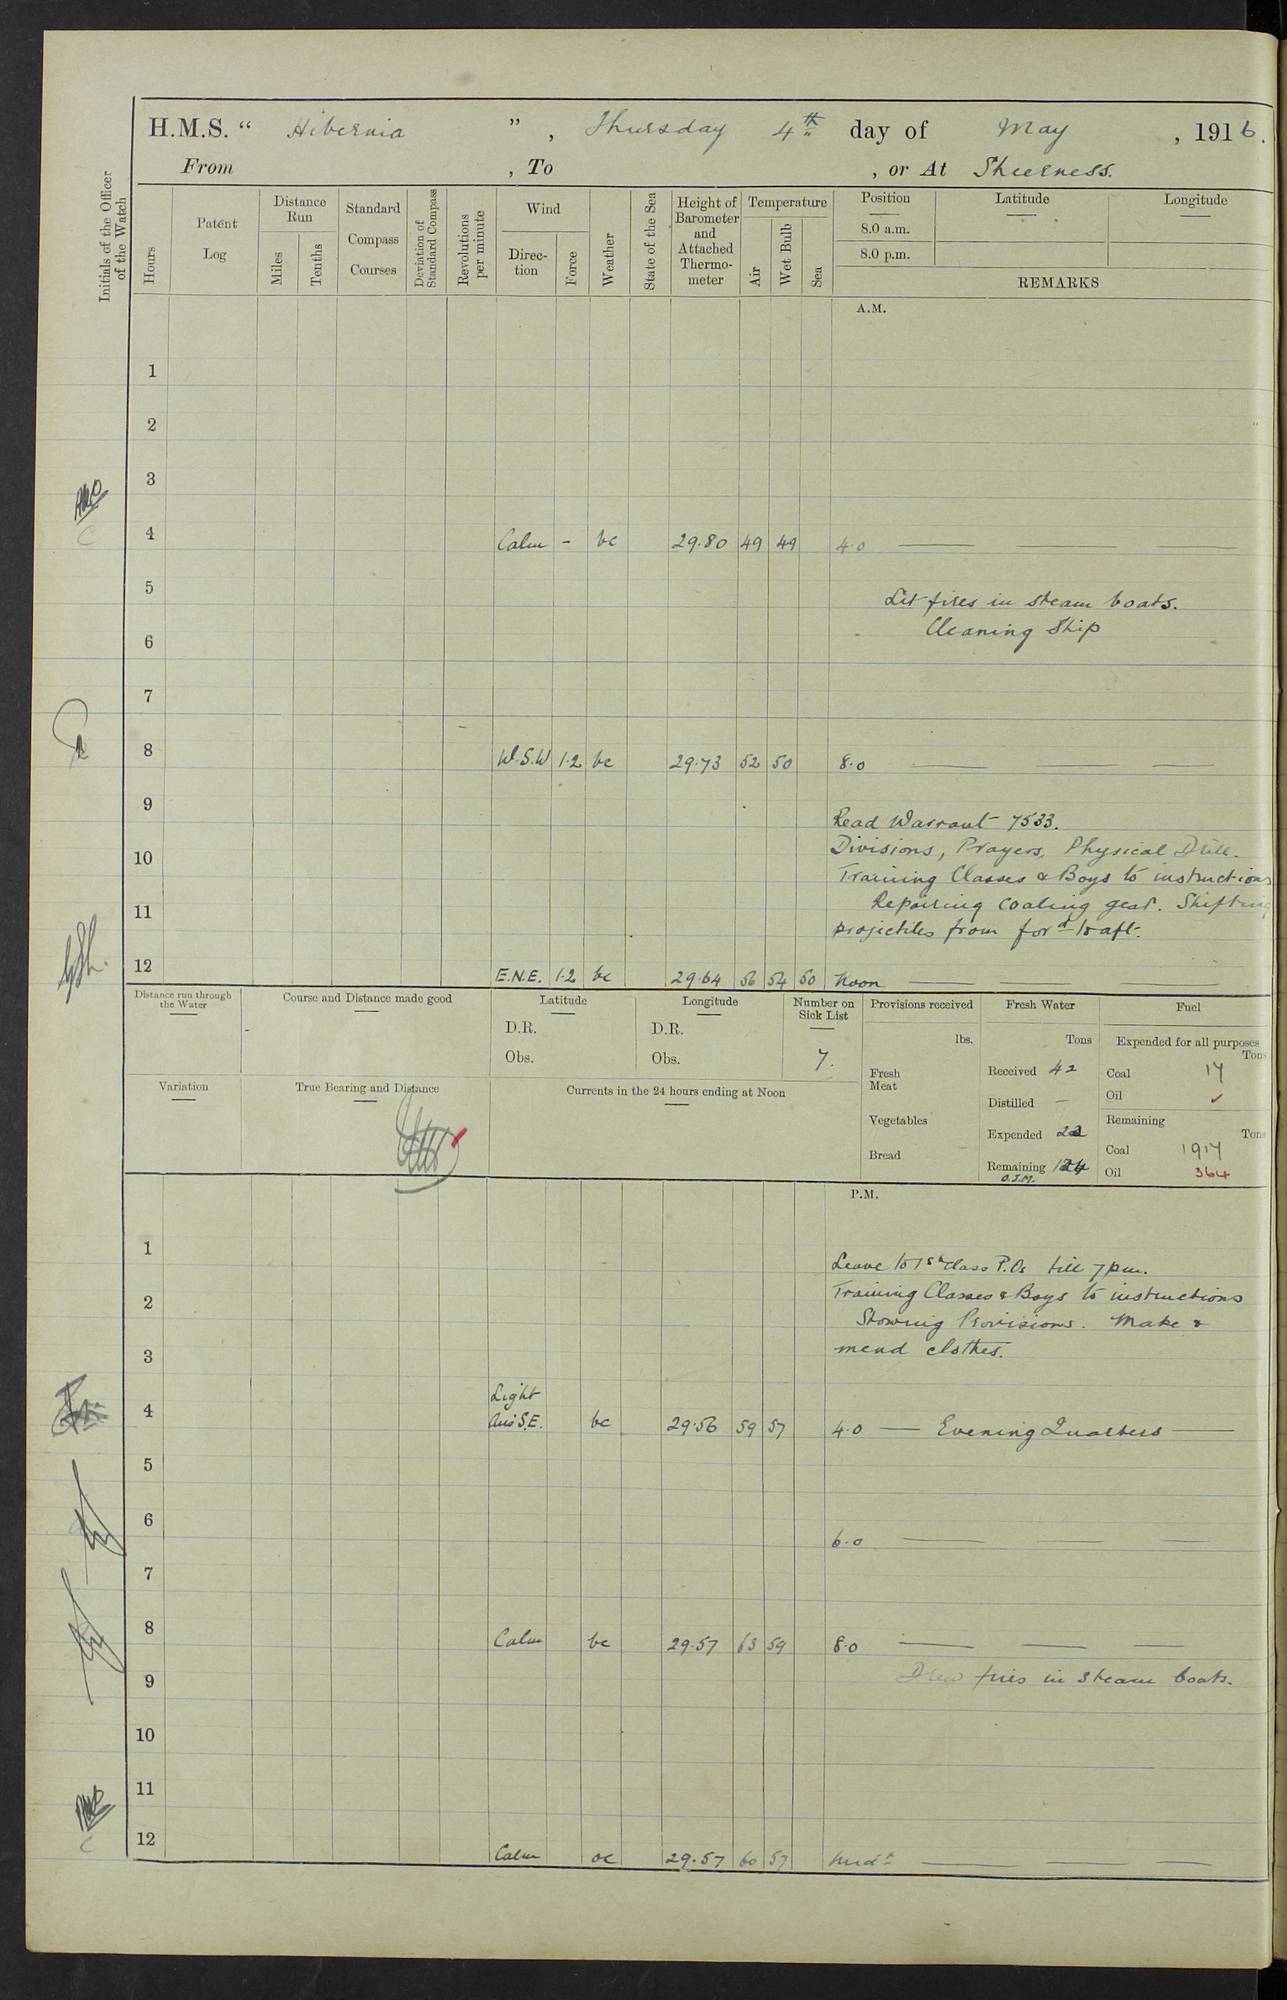 H.M.S. “ Hibernia ” , Thursday 4th day of May , 1916.
From , To , or At Sheerness.
Initials of the Officer of the Watch
Hours
Patent Log
Distance Run
Miles
Tenths
Standard Compass Courses
Deviation of Standard Compass
Revolutions per minute
Wind
Direction
Force
Weather
State of the Sea
Height of Barometer and Attached Thermometer
Temperature
Air
Wet Bulb
Sea
Position
8.0 a.m.
8.0 p.m.
Latitude
Longitude
REMARKS
A.M.
1
2
3
4 Calm - bc 29.80 49 49 4.0
5
Lit fires in steam boats.
6 Cleaning Ship
7
8 W.S.W 1.2 bc 29.73 52 50 8.0
9
Read Warrant 7533.
10 Divisions, Prayers, Physical Drill.
Training Classes & Boys to instructions
11 Repairing coaling gear. Shifting
projectiles from ford to aft.
12 E.N.E. 1.2 bc 29.64 56 54 50 Noon
Distance run through the Water
Course and Distance made good
Latitude
D.R.
Obs.
Longitude
D.R.
Obs.
Number on Sick List
7.
Provisions received
lbs.
Fresh Meat
Vegetables
Bread
Fresh Water
Tons
Received 42
Distilled –
Expended
Remaining
O.J.M.
Fuel
Expended for all purposes
Tons
Coal 17
Oil ✓
Remaining
Tons
Coal 1917
Oil 364
Variation
True Bearing and Distance
Currents in the 24 hours ending at Noon
P.M.
1 Leave to 1st Class P.Os till 7 pm.
2 Training Classes & Boys to instructions
Stowing Provisions. Make &
3 mend clothes.
Light
4 Airs S.E. bc 29.56 59 57 4.0 — Evening Quarters —
5
6 6.0
7
8 Calm bc 29.57 63 59 8.0
9 Drew fires in steam boats.
10
11
12 Calm oc 29.57 60 57 Midt